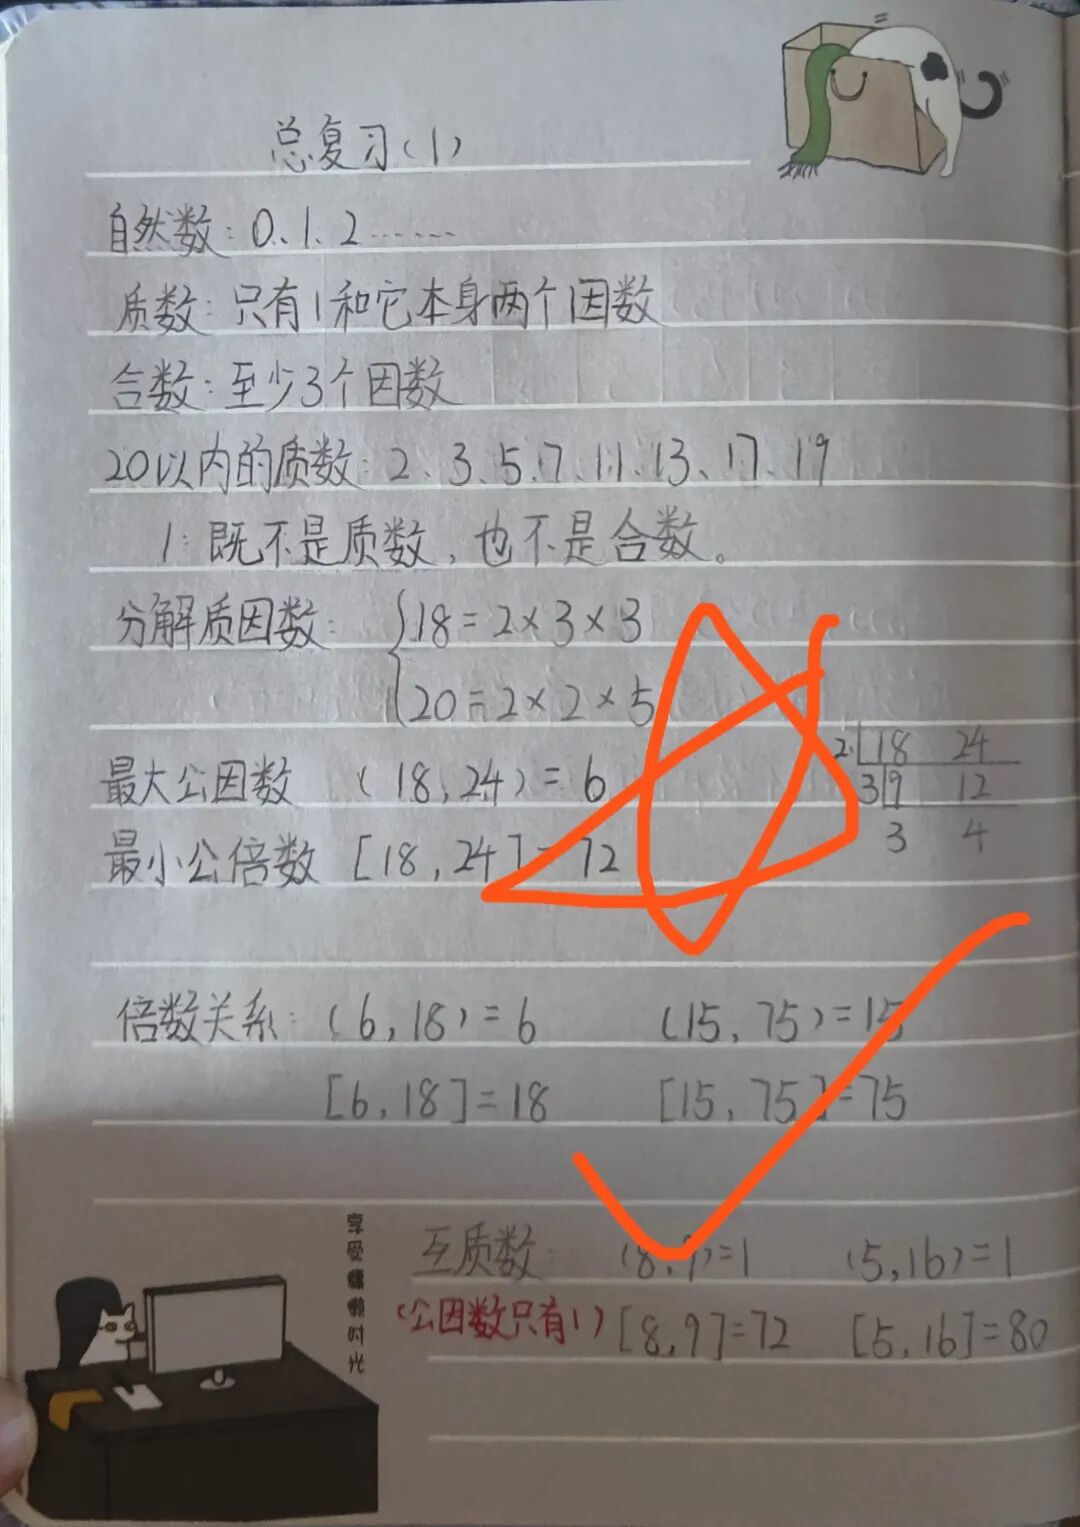 总复习(1)
自然数：0、1、2……
质数：只有1和它本身两个因数
合数：至少3个因数
20以内的质数：2、3、5、7、11、13、17、19
1：既不是质数，也不是合数。
分解质因数：18=2×3×3
20=2×2×5
最大公因数 (18,24)=6
最小公倍数 [18,24]=72
2 18 24
3 9 12
3 4
倍数关系：(6,18)=6 (15,75)=15
[6,18]=18 [15,75]=75
互质数：(8,9)=1 (5,16)=1
(公因数只有1) [8,9]=72 [5,16]=80
享受慵懒时光